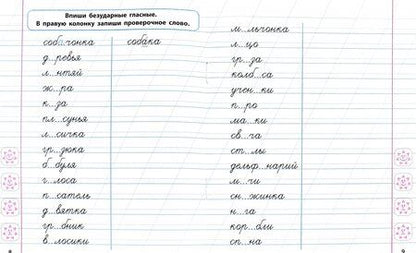 Впиши безударные гласные.
В правую колонку запиши проверочное слово.
соб...чонка собака
д...ревья
л...нтяй
ж...ра
к...за
пл...сунья
л...сичка
гр...зюка
б...буля
г...лоса
п...сатель
д...вятка
гр...бник
в...лосики
8
м...льчонка
л...цо
гр...за
колб...са
учен...ки
п...ро
ма...ки
св...ча
ст...лы
дельф...нарий
м...чи
сн...жинка
н...га
кор...бли
сп...на
9